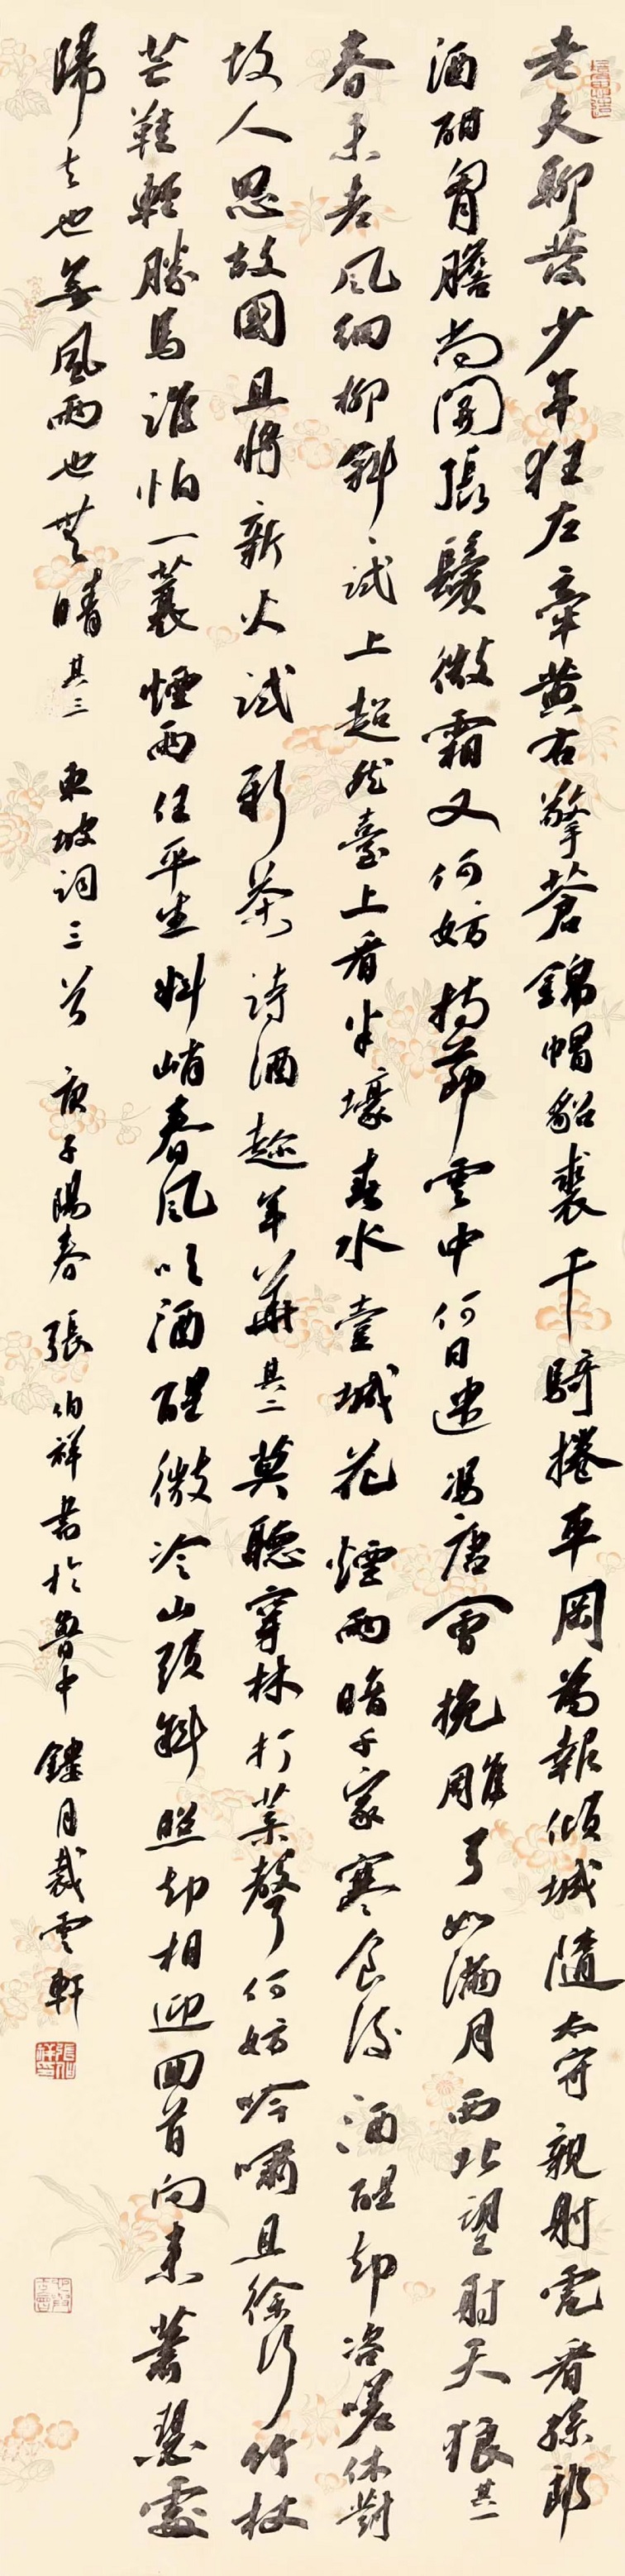 老夫聊發少年狂左牽黄右擎蒼錦帽貂裘千騎捲平岡為報傾城隨太守親射虎看孫郎
酒酣胷膽尚開張鬢微霜又何妨持節雲中何日遣馮唐會挽雕弓如滿月西北望射天狼其一
春未老風細柳斜、試上超然臺上看半壕春水壹城花煙雨暗千家寒食後酒醒却咨嗟休對
故人思故國且將新火試新茶詩酒趁年華其二莫聽穿林打葉聲何妨吟嘯且徐行竹杖
芒鞋輕勝馬誰怕一蓑煙雨任平生料峭春風吹酒醒微冷山頭斜照却相迎回首向來蕭瑟處
歸去也無風雨也無晴其三 東坡詞三首 庚子陽春 張伯祥書於魯中鏤月裁雲軒